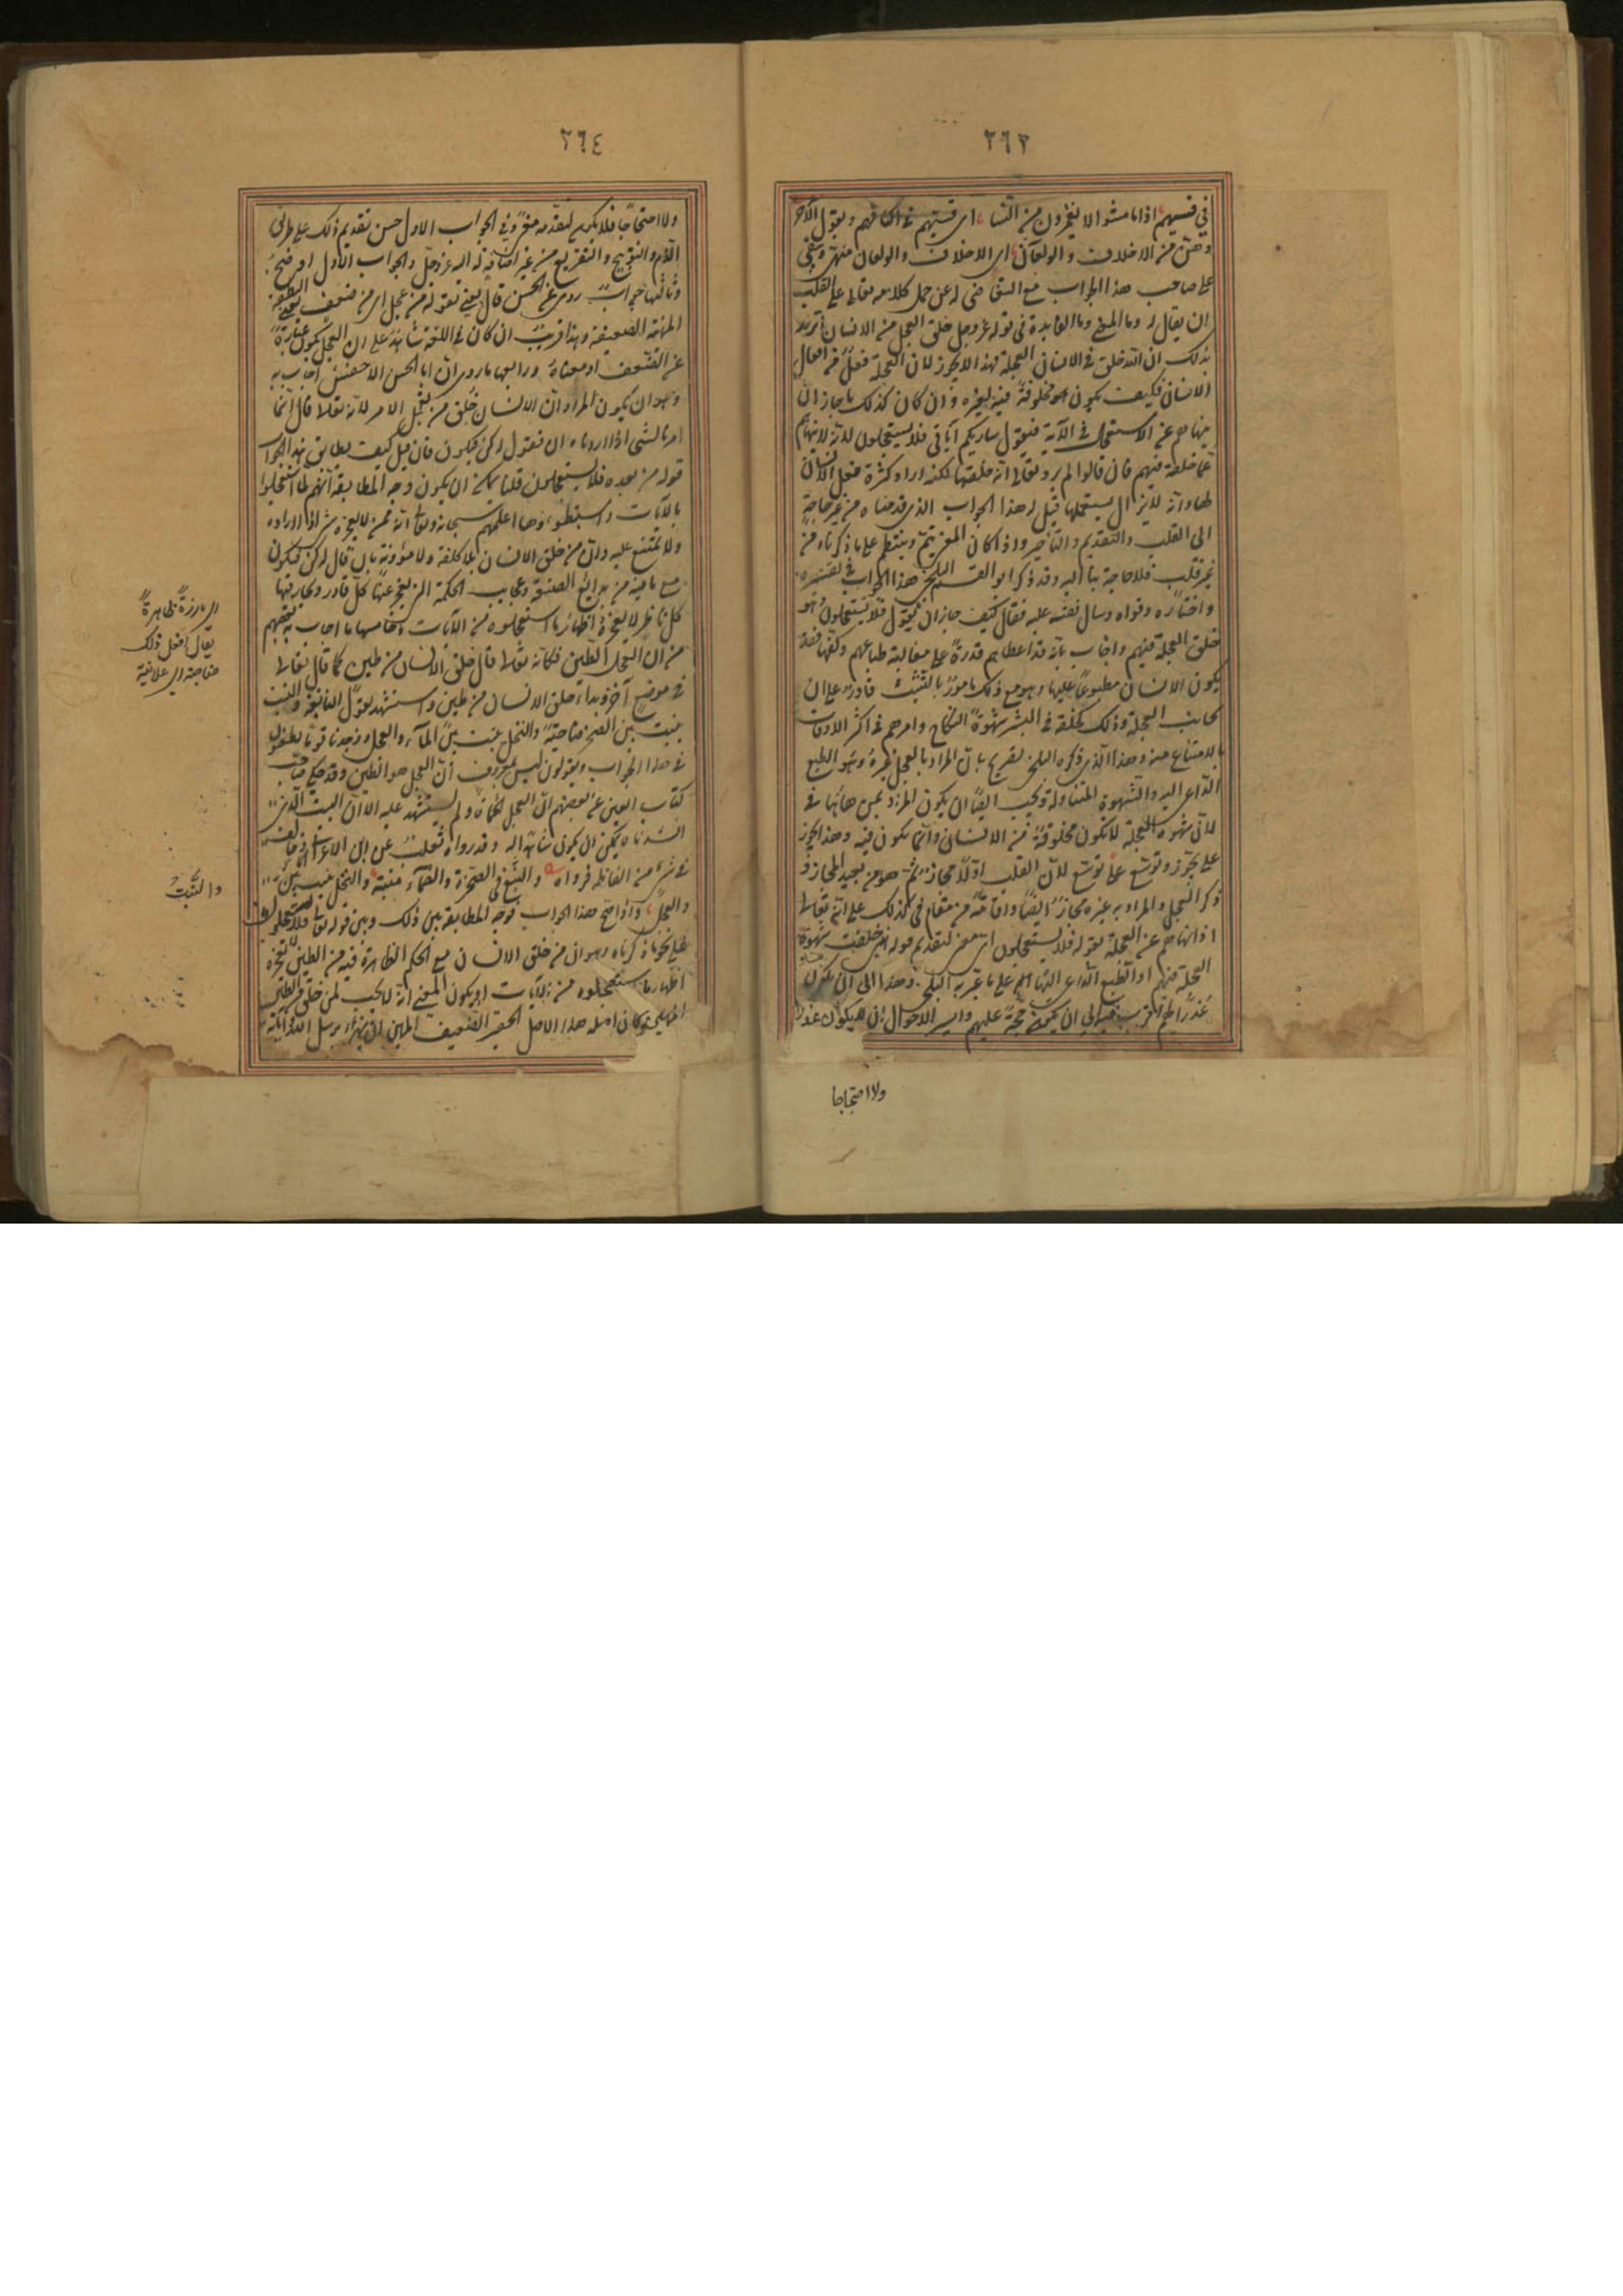 ٢٦٣
في قسيهم اذا ما مشوا لا يغمزون من النسا اى قسيهم في اكفهم ويقول الآخر
وهن من الاخلاف والولعان اى الاخلاف والولعان منهن ويبقى
على صاحب هذا الجواب مع التغاضى له عن حمل كلامه تعالى على القلب
ان يقال له وما المعنى وما الفايدة في قوله عز وجل خلق العجل من الانسان أتريد
بذلك ان الله خلق في الانسان العجلة فهذا لا يجوز لان العجلة فعل من افعال
الانسان فكيف يكون مخلوقة فيه لغيره ولو ان كان كذلك ما جاز ان
ينهاهم عن الاستعجال في الآية فيقول ساريكم آياتى فلا تستعجلون لانه لا ينهاهم
عما خلقه فيهم فان قالوا لم يرد تعالى انه خلقها لكنه اراد كثرة فعل الانسان
لها وانه لا يزال يستعملها قيل له هذا الجواب الذى قدمناه من غير حاجة
الى القلب والتقديم والتاخير واذا كان المعنى يتم وينتظم على ما ذكرناه من
غير قلب فلا حاجة بنا اليه وقد ذكر ابو القسم البلخى هذا الجواب في تفسيره
واختاره وقواه وسال نفسه عليه فقال كيف جاز ان يقول فلا تستعجلون وهو
خلق العجلة فيهم واجاب بانه قد اعطاهم قدرة على مغالبة طباعهم وكفها فقد
يكون الانسان مطبوعا عليها وهو مع ذلك مامور بالتثبت قادر على ان
يجانب العجلة وذلك كخلقه في البشر شهوة النكاح وامرهم في اكثر الاوقات
بالامتناع منه وهذا الذى ذكره البلخى تصريح بان المراد بالعجل غيره وهو الطبع
الداعى اليه والشهوة المتناولة ويجب ايضا ان يكون المراد بمن هاهنا في
لان شهوة العجلة لا تكون مخلوقة من الانسان وانما تكون فيه وهذا تجوز
على تجوز وتوسع على توسع لان القلب اولا مجاز ثم هو من بعيد المجاز و
ذكر العجل والمراد به غيره مجاز ايضا واقامة من مقام في كذلك على انه تعالى
اذا نهاهم عن العجلة بقوله فلا تستعجلون اى معنى لتقديم قوله انى خلقت شهوة
العجلة فيهم او الطبع الداعى اليها فيهم على ما عبر به البلخى وهذا الى ان يكون
عذرا لهم اقرب منه الى ان يكون حجة عليهم وايسر الاحوال ان لا يكون عذرا
ولا احتجاجا
٢٦٤
ولا احتجاجا فلا يكون لتقديمه معنى وفي الجواب الاول حسن تقديم ذلك على طريق
الذم والتوبيخ والتقريع من غير اضافة له اليه عز وجل والجواب الاول اوضح
وثالثها جواب روى عن الحسن قال يعنى بقوله من عجل اى من ضعف وهى النطفة
المهينة الضعيفة وهذا قريب ان كان في اللغة شاهد على ان العجل يكون عبارة
عن الضعف او معناه ورابعها ما روى ان ابا الحسن الاخفش اجاب به
وهو ان يكون المراد ان الانسان خلق من تعجيل الامر لانه تعالى قال انما
امرنا لشى اذا اردناه ان نقول له كن فيكون فان قيل كيف يطابق هذا الجواب
قوله من بعده فلا تستعجلون قلنا يمكن ان يكون وجه المطابقة انهم لما استعجلوا
بالآيات واستبطئوها اعلمهم سبحانه وتعالى انه ممن لا يعجزه شى اذا اراده
ولا يمتنع عليه وان من خلق الانسان بلا كلفة ولا مؤونة بان قال له كن فيكون
مع ما فيه من بدايع الصنعة وعجايب الحكمة التى يعجز عنها كل قادر ويحار فيها
كل ناظر لا يعجزه اظهار ما استعجلوه من الآيات وخامسها ما اجاب به بعضهم
من ان العجل الطين فكانه تعالى قال خلق الانسان من طين كما قال تعالى
في موضع آخر وبدا خلق الانسان من طين واستشهد بقول الشاعر والنبت
ينبت بين الصخر ضاحية والنخل ينبت بين الماء والعجل ووجدنا قوما يطعنون
في هذا الجواب ويقولون ليس بمعروف ان العجل هو الطين وقد حكى صاحب
كتاب العين عن بعضهم ان العجل الحماة ولم يستشهد عليه الا ان البيت الذى
انشدناه يمكن ان يكون شاهدا له وقد رواه ثعلب عن ابن الاعرابى وخالف
في شى من الفاظه فرواه والنبع في الصخرة الصماء منبته والنخل ينبت بين الماء
والعجل واذا صح هذا الجواب فوجه المطابقة بين ذلك وبين قوله تعالى فلا تستعجلون
على نحو ما ذكرناه وهو ان من خلق الانسان مع الحكم الظاهرة فيه من الطين لا يعجزه
اظهار ما استعجلوه من الآيات او يكون المعنى انه لا يجب لمن خلق من الطين
المهين وكان اصله هذا الاصل الحقير الضعيف المهين ان يهزأ برسل الله وآياته
اى بارزة ظاهرة
يقال افعل ذلك
ضاحية اى علانية
والنبت